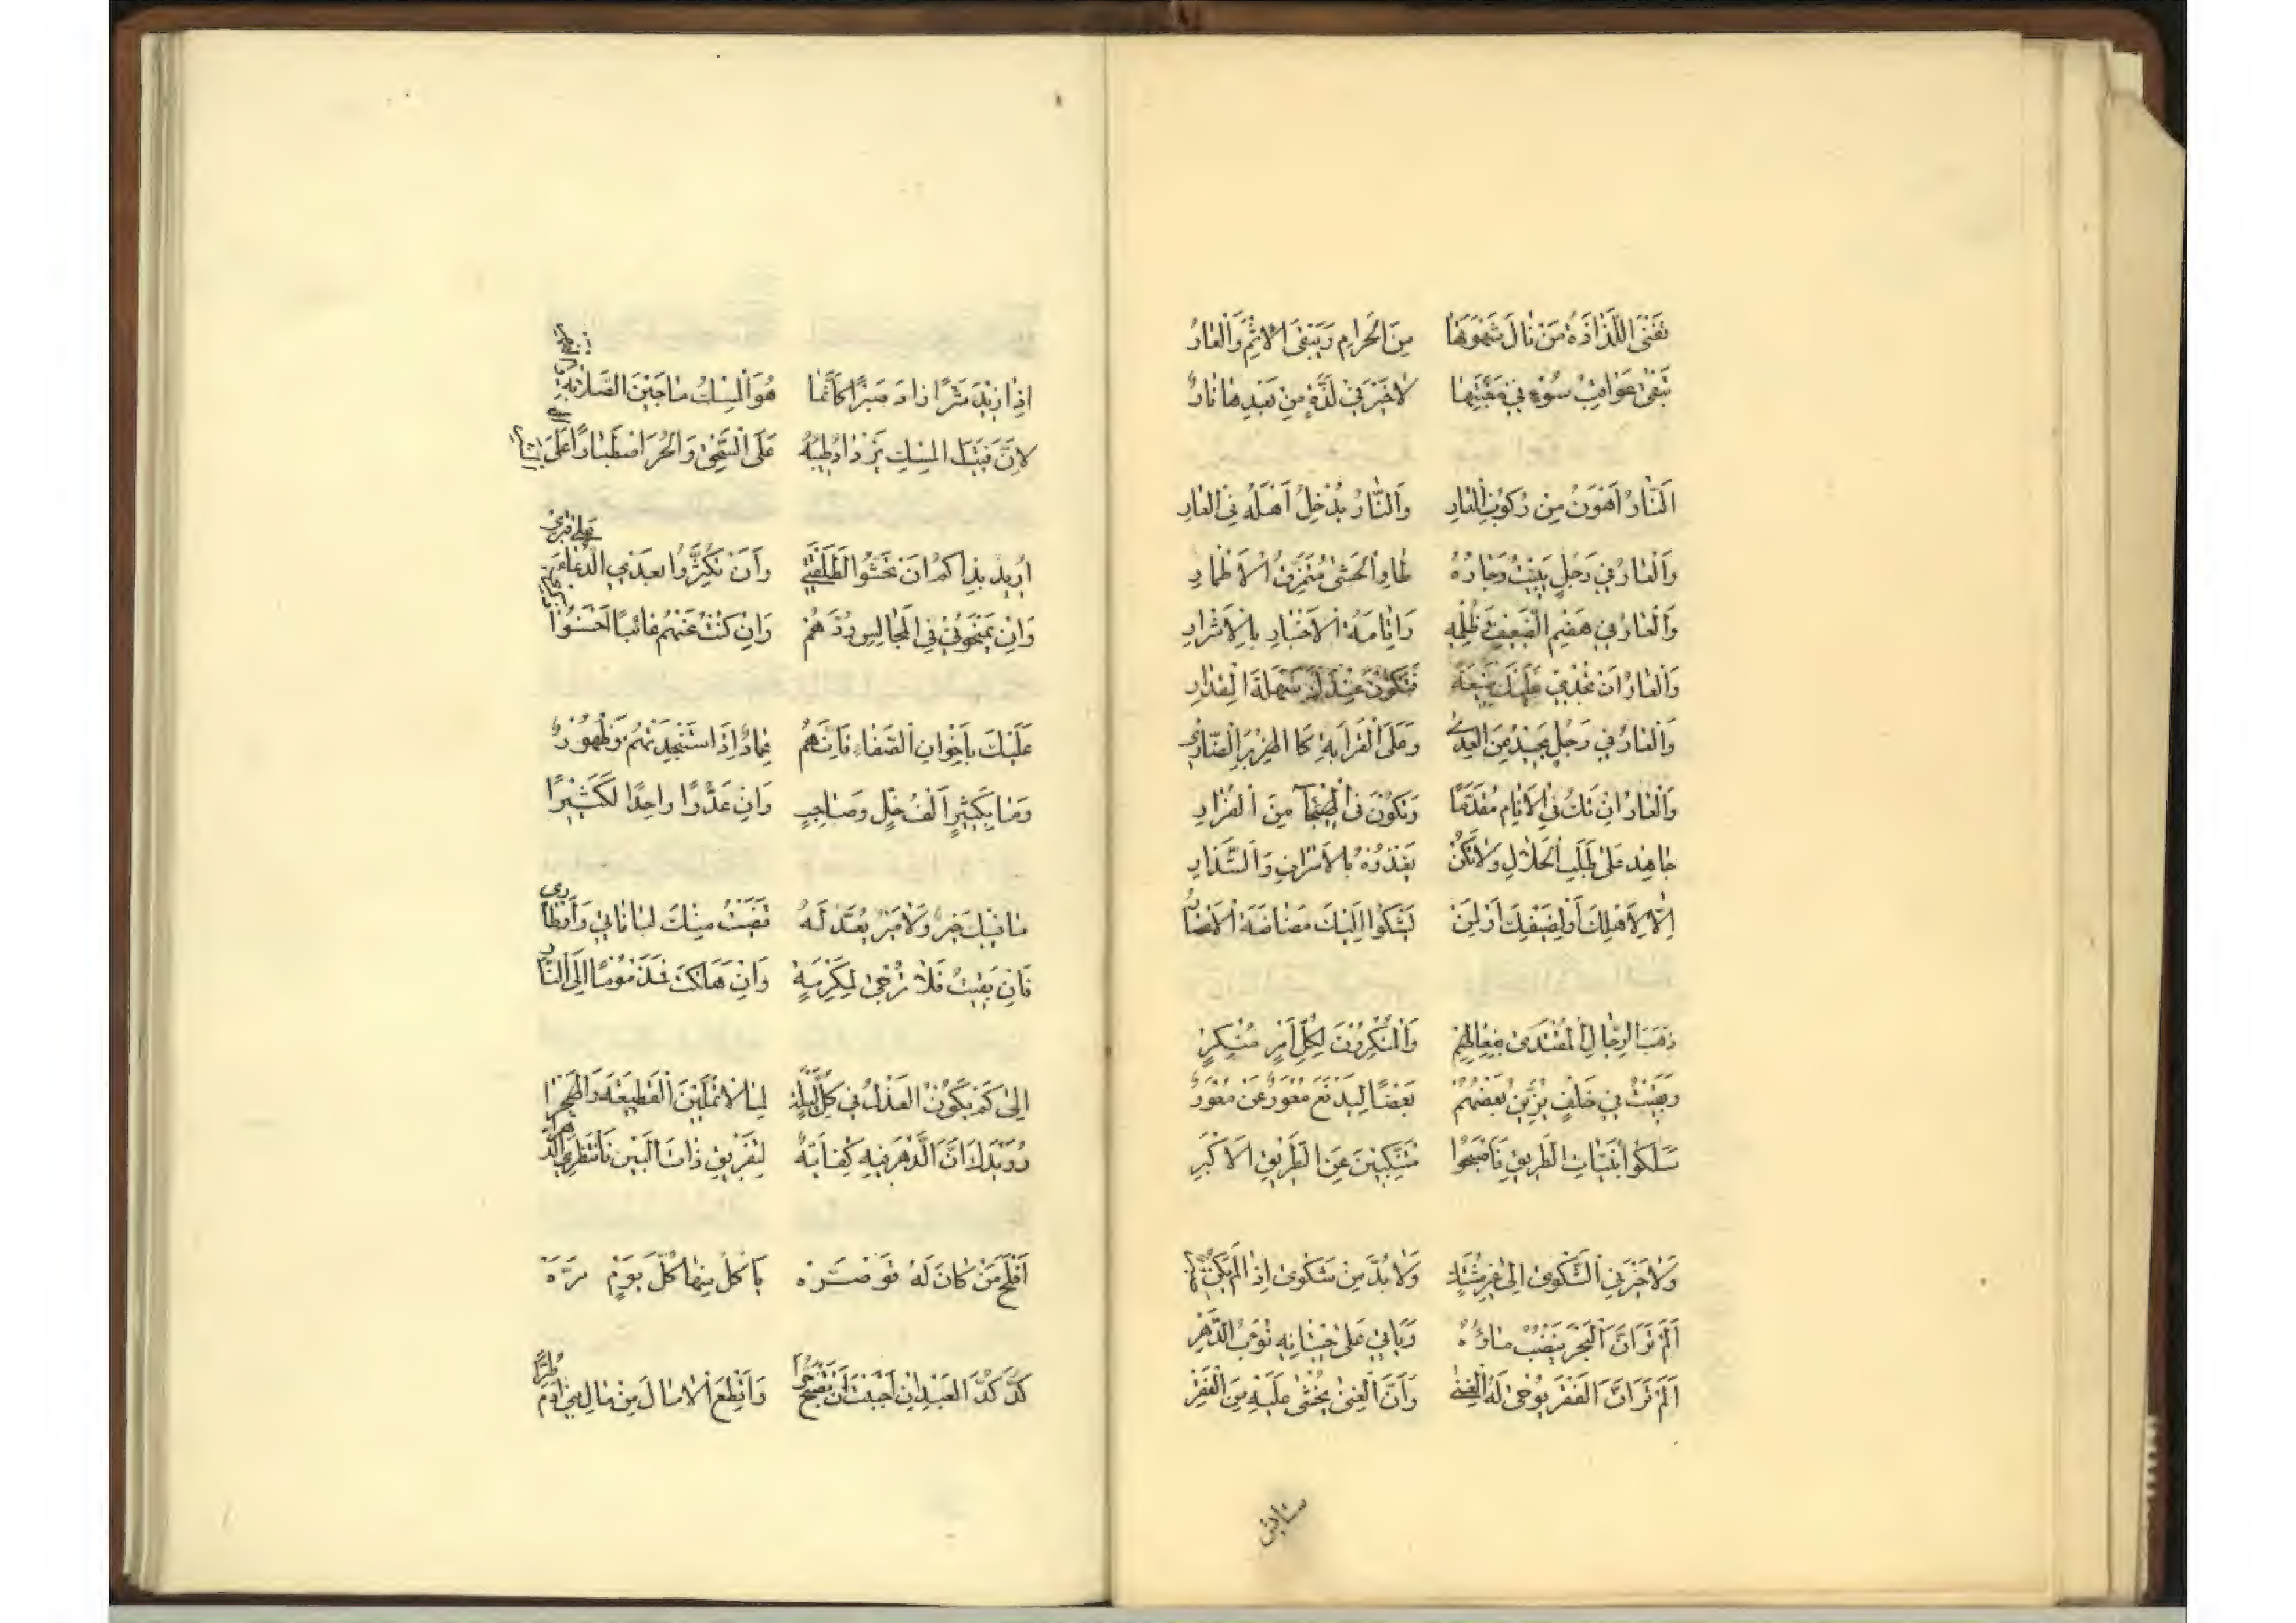 تَفْنَى اللَّذَاذَةُ مَنْ نَالَ شَهْوَتَهَا مِنَ الْحَرَامِ وَيَبْقَى الْاِثْمُ وَالْعَارُ
تَبْقَى عَوَاقِبُ سُوْءٍ فِي مَغَبَّتِهَا لَاخَيْرَ فِي لَذَّةٍ مِنْ بَعْدِهَا نَارُ
اَلنَّارُ اَهْوَنُ مِنْ رُكُوْبِ الْعَارِ وَالْعَارُ يُدْخِلُ اَهْلَهُ فِي النَّارِ
وَالْعَارُ فِي رَجُلٍ يَبِيْتُ وَجَارُهُ طَاوِ الْحَشٰى مُتَمَزِّقُ الْاَطْمَارِ
وَالْعَارُ فِي هَضْمِ الضَّعِيْفِ وَظُلْمِهِ وَاِقَامَةُ الْاَخْيَارِ بِالْاَشْرَارِ
وَالْعَارُ اَنْ تُجْدٰى عَلَيْكَ صَنِيْعَةٌ فَتَكُوْنَ عِنْدَكَ سَهْلَةَ الْمِقْدَارِ
وَالْعَارُ فِي رَجُلٍ يَحِيْدُ عَنِ الْعِدٰى وَعَلَى الْقَرَابَةِ كَا الْهِزَبْرِ الضَّارِيْ
وَالْعَارُ اِنْ تَكُ فِي الْاَنَامِ مُقَدَّمًا وَتَكُوْنَ فِي الْهَيْجَاءِ مِنَ الْفُرَّارِ
جَاهِدْ عَلٰى طَلَبِ الْحَلَالِ وَلَا تَكُنْ تَغْذُوْهُ بِالْاَسْرَافِ وَالتَّبْذَارِ
اِلَّا لِاَهْلِكَ اَوْ لِضَيْفِكَ اَوْ لِمَنْ يَشْكُوْا اِلَيْكَ مَضَاضَةَ الْاَعْسَارِ
ذَهَبَ الرِّجَالُ الْمُقْتَدٰى بِفِعَالِهِمْ وَالْمُنْكِرُوْنَ لِكُلِّ اَمْرٍ مُنْكَرٍ
وَبَقِيْتُ فِي خَلْفٍ يُزَيِّنُ بَعْضُهُمْ بَعْضًا لِيَدْفَعَ مُعْوِرٌ عَنْ مُعْوِرٍ
سَلَكُوْا بُنَيَّاتِ الطَّرِيْقِ فَاَصْبَحُوْا مُتَنَكِّبِيْنَ عَنِ الطَّرِيْقِ الْاَكْبَرِ
وَلَا خَيْرَ فِي الشَّكْوٰى اِلٰى غَيْرِ مُشْتَكٍ وَلَا بُدَّ مِنْ شَكْوٰى اِذَا لَمْ يَكُنْ
اَلَمْ تَرَ اَنَّ الْبَحْرَ يَنْضُبُ مَاؤُهُ وَيَاْتِي عَلٰى حِيْتَانِهِ نُوَبُ الدَّهْرِ
اَلَمْ تَرَ اَنَّ الْفَقْرَ يُرْجٰى لَهُ الْغِنٰى وَاَنَّ الْغِنٰى يُخْشٰى عَلَيْهِ مِنَ الْفَقْرِ
اِذَا زِيْدَ شَرًّا زَادَ صَبْرًا كَاَنَّمَا هُوَ الْمِسْكُ مَا بَيْنَ الصَّلَايَةِ
لِاَنَّ فَتِيْتَ الْمِسْكِ يَزْدَادُ طِيْبُهُ عَلَى السَّحْقِ وَالْحُرَّ اصْطِبَارًا عَلَى
اُرِيْدُ بِذَاكُمْ اَنْ تَهَشُّوْا لِطَلْقَتِيْ وَاَنْ تُكْثِرُوْا بَعْدِي الدُّعَاءَ عَلٰى قَبْرِيْ
وَاِنْ يَمْنَحُوْنِيْ فِي الْمَجَالِسِ وُدَّهُمْ وَاِنْ كُنْتُ عَنْهُمْ غَائِبًا اَحْسَنُوْا
عَلَيْكَ بِاِخْوَانِ الصَّفَاءِ فَاِنَّهُمْ عِمَادٌ اِذَا اسْتَنْجَدْتَهُمْ وَظُهُوْرٌ
وَمَا بِكَثِيْرٍ اَلْفُ خِلٍّ وَصَاحِبٍ وَاِنَّ عَدُوًّا وَاحِدًا لَكَثِيْرًا
مَا فِيْكَ خَيْرٌ وَلَا مَيْرٌ يُعَدُّ لَهُ قَضَيْتُ مِنْكَ لُبَانَاتِيْ وَاَوْطَارِيْ
فَاِنْ بَقِيْتَ فَلَا تُرْجٰى لِمَكْرُمَةٍ وَاِنْ هَلَكْتَ فَمَذْمُوْمًا اِلَى النَّارِ
اِلٰى كَمْ يَكُوْنُ الْعَذْلُ فِي كُلِّ لَيْلَةٍ لِمَا لَا تَمَلِّيْنَ الْقَطِيْعَةَ وَالْهَجْرَا
رُوَيْدَكِ اِنَّ الدَّهْرَ فِيْهِ كِفَايَةٌ لِتَفْرِيْقِ ذَاتِ الْبَيْنِ فَانْتَظِرِي الدَّهْرَا
اَفْلَحَ مَنْ كَانَ لَهُ قَوْصَرَّهْ يَاْكُلُ مِنْهَا كُلَّ يَوْمٍ مَرَّهْ
كُدَّ كَدَّ الْعَبْدِ اِنْ اَحْبَبْتَ اَنْ تُصْبِحَ حُرًّا وَاقْطَعِ الْاٰمَالَ مِنْ مَالِ بَنِيْ اٰدَمَ طُرًّا